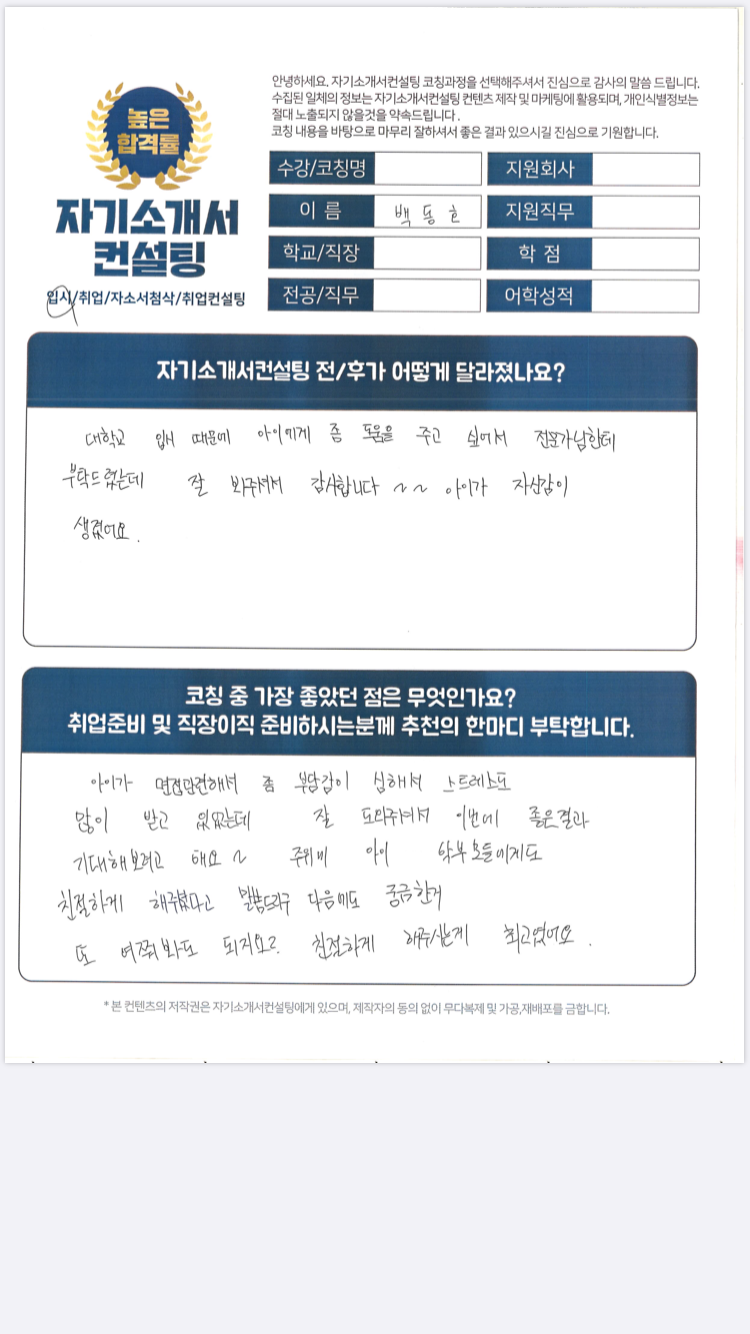 안녕하세요. 자기소개서컨설팅 코칭과정을 선택해주셔서 진심으로 감사의 말씀 드립니다.
수집된 일체의 정보는 자기소개서컨설팅 컨텐츠 제작 및 마케팅에 활용되며, 개인식별정보는
절대 노출되지 않을것을 약속드립니다.
코칭 내용을 바탕으로 마무리 잘하셔서 좋은 결과 있으시길 진심으로 기원합니다.
높은
합격률
자기소개서
컨설팅
입시/취업/자소서첨삭/취업컨설팅
수강/코칭명
지원회사
이 름 백동호
지원직무
학교/직장
학 점
전공/직무
어학성적
자기소개서컨설팅 전/후가 어떻게 달라졌나요?
대학교 입시 때문에 아이에게 좀 도움을 주고 싶어서 전문가님한테
부탁드렸는데 잘 봐주셔서 감사합니다 ~~ 아이가 자신감이
생겼어요.
코칭 중 가장 좋았던 점은 무엇인가요?
취업준비 및 직장이직 준비하시는분께 추천의 한마디 부탁합니다.
아이가 면접관련해서 좀 부담감이 심해서 스트레스도
많이 받고 있었는데 잘 도와주셔서 이번에 좋은결과
기대해보려고 해요~ 주위에 아이 학부모들에게도
친절하게 해주셨다고 말씀드리구 다음에도 궁금한거
또 여쭤봐도 되지요? 친절하게 해주시는게 최고였어요.
* 본 컨텐츠의 저작권은 자기소개서컨설팅에게 있으며, 제작자의 동의 없이 무다복제 및 가공,재배포를 금합니다.